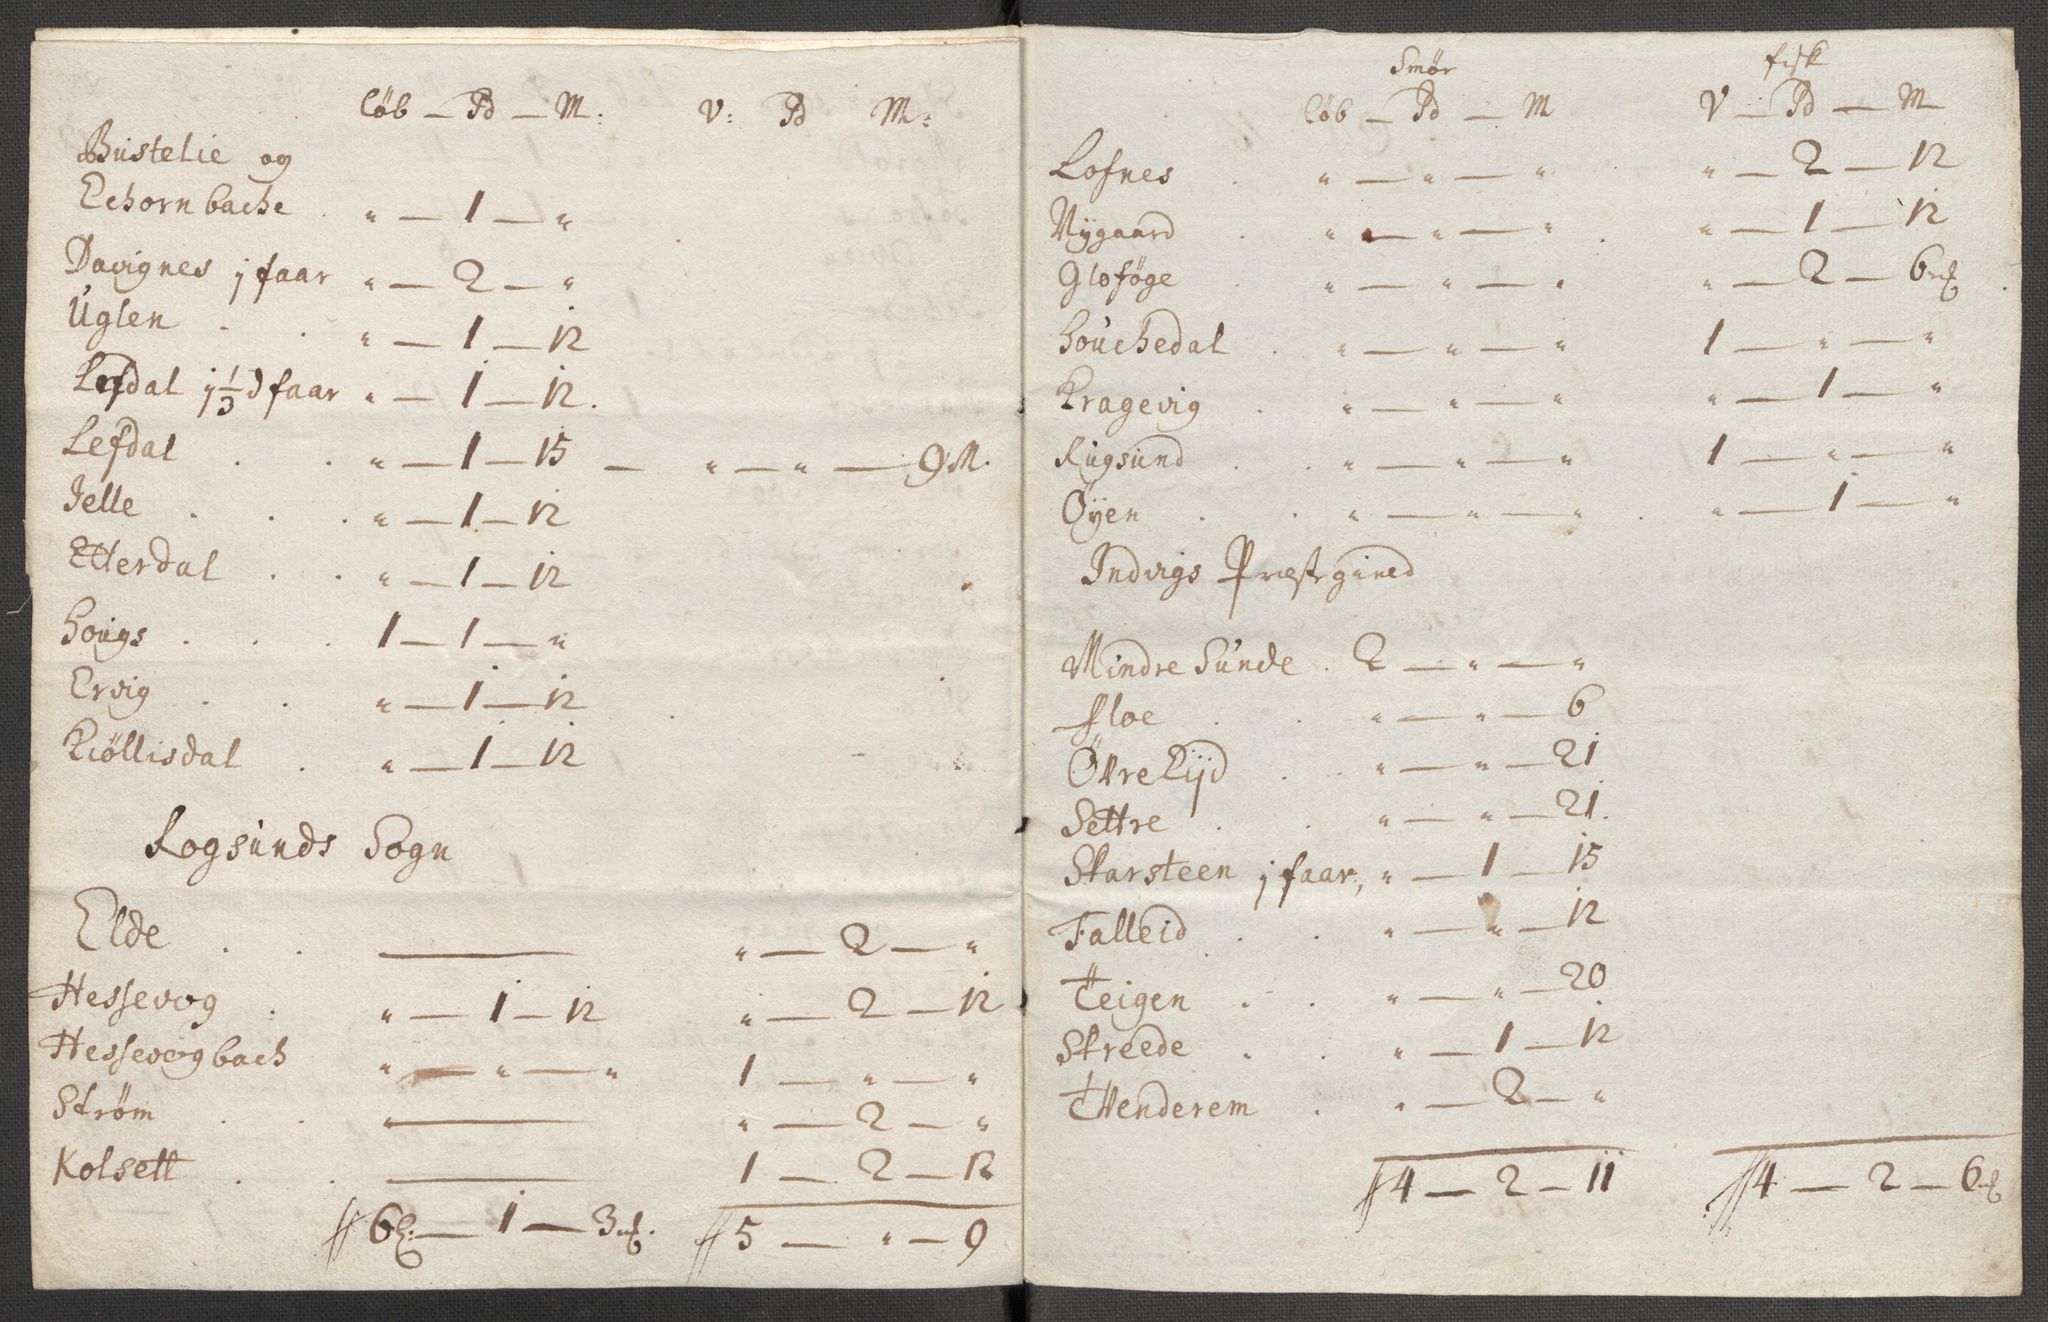 Løb — Pd — M: V: Pd M:
Bustelie og
Echornbache . " — 1 — "
Davignes j faar " — 2 — "
Uglen . . " — 1 — 12
Lefdal j 1/3 d faar " — 1 — 12.
Lefdal . . " — 1 — 15 — " — " — 9 M.
Ielle . . . " — 1 — 12
Etterdal . . " — 1 — 12
Hougs . . . 1 — 1 — "
Ervig . . " — 1 — 12
Kiøllisdal . " — 1 — 12
Rogsunds Sogn
Elde . . —— " — 2 — "
Hessevog . " — 1 — 12 " — 2 — 12
Hessevogbach " — " — " 1 — " — "
Strøm . . " —— " — 2 — "
Kolsett . . —— 1 — 2 — 12
6 — 1 — 3 5 — " — 9
Smør fisk
Løb — Pd — M V — Pd — M
Lofnes . " — " — " " — 2 — 12
Nÿgaard . " — " — " . " — 1 — 12
Gloføge . " — " — " " — 2 — 6
Houchedal . " — " — " 1 — " — "
Kragevig . " — " — " " — 1 — "
Rugsund . . " — " — " 1 — " — "
Øÿen . . " — " — " . " — 1 — "
Indvigs Præstegined
Mindre Sunde . 2 — " — "
Floe . . " — " — 6
Øvre Eijd . . " — " — 21
Settre . . " — " — 21.
Starsteen j faar, " — 1 — 15
Falleid . . " — " — 12
Teigen . . " — " — 20
Streede . . " — 1 — 12
Tvenderem . " — 2 — "
4 — 2 — 11 4 — 2 — 6